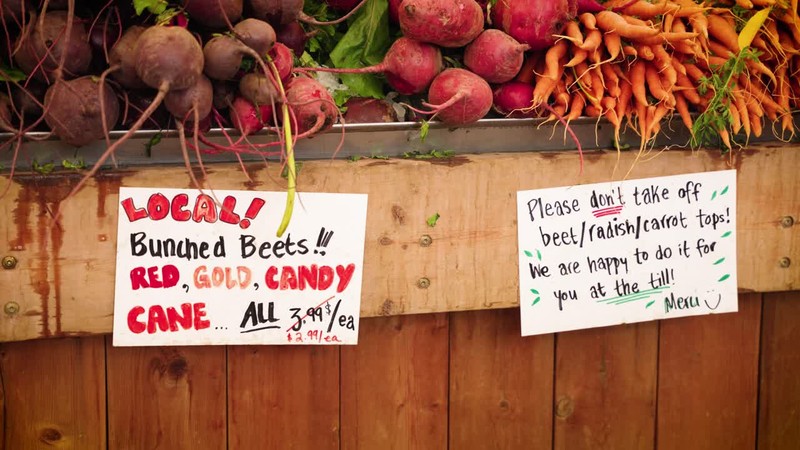 LOCAL!
Bunched Beets!!!
RED, GOLD, CANDY
CANE... ALL 3.99$/ea
$2.99/ea
Please don't take off
beet/radish/carrot tops!
We are happy to do it for
you at the till!
Merci